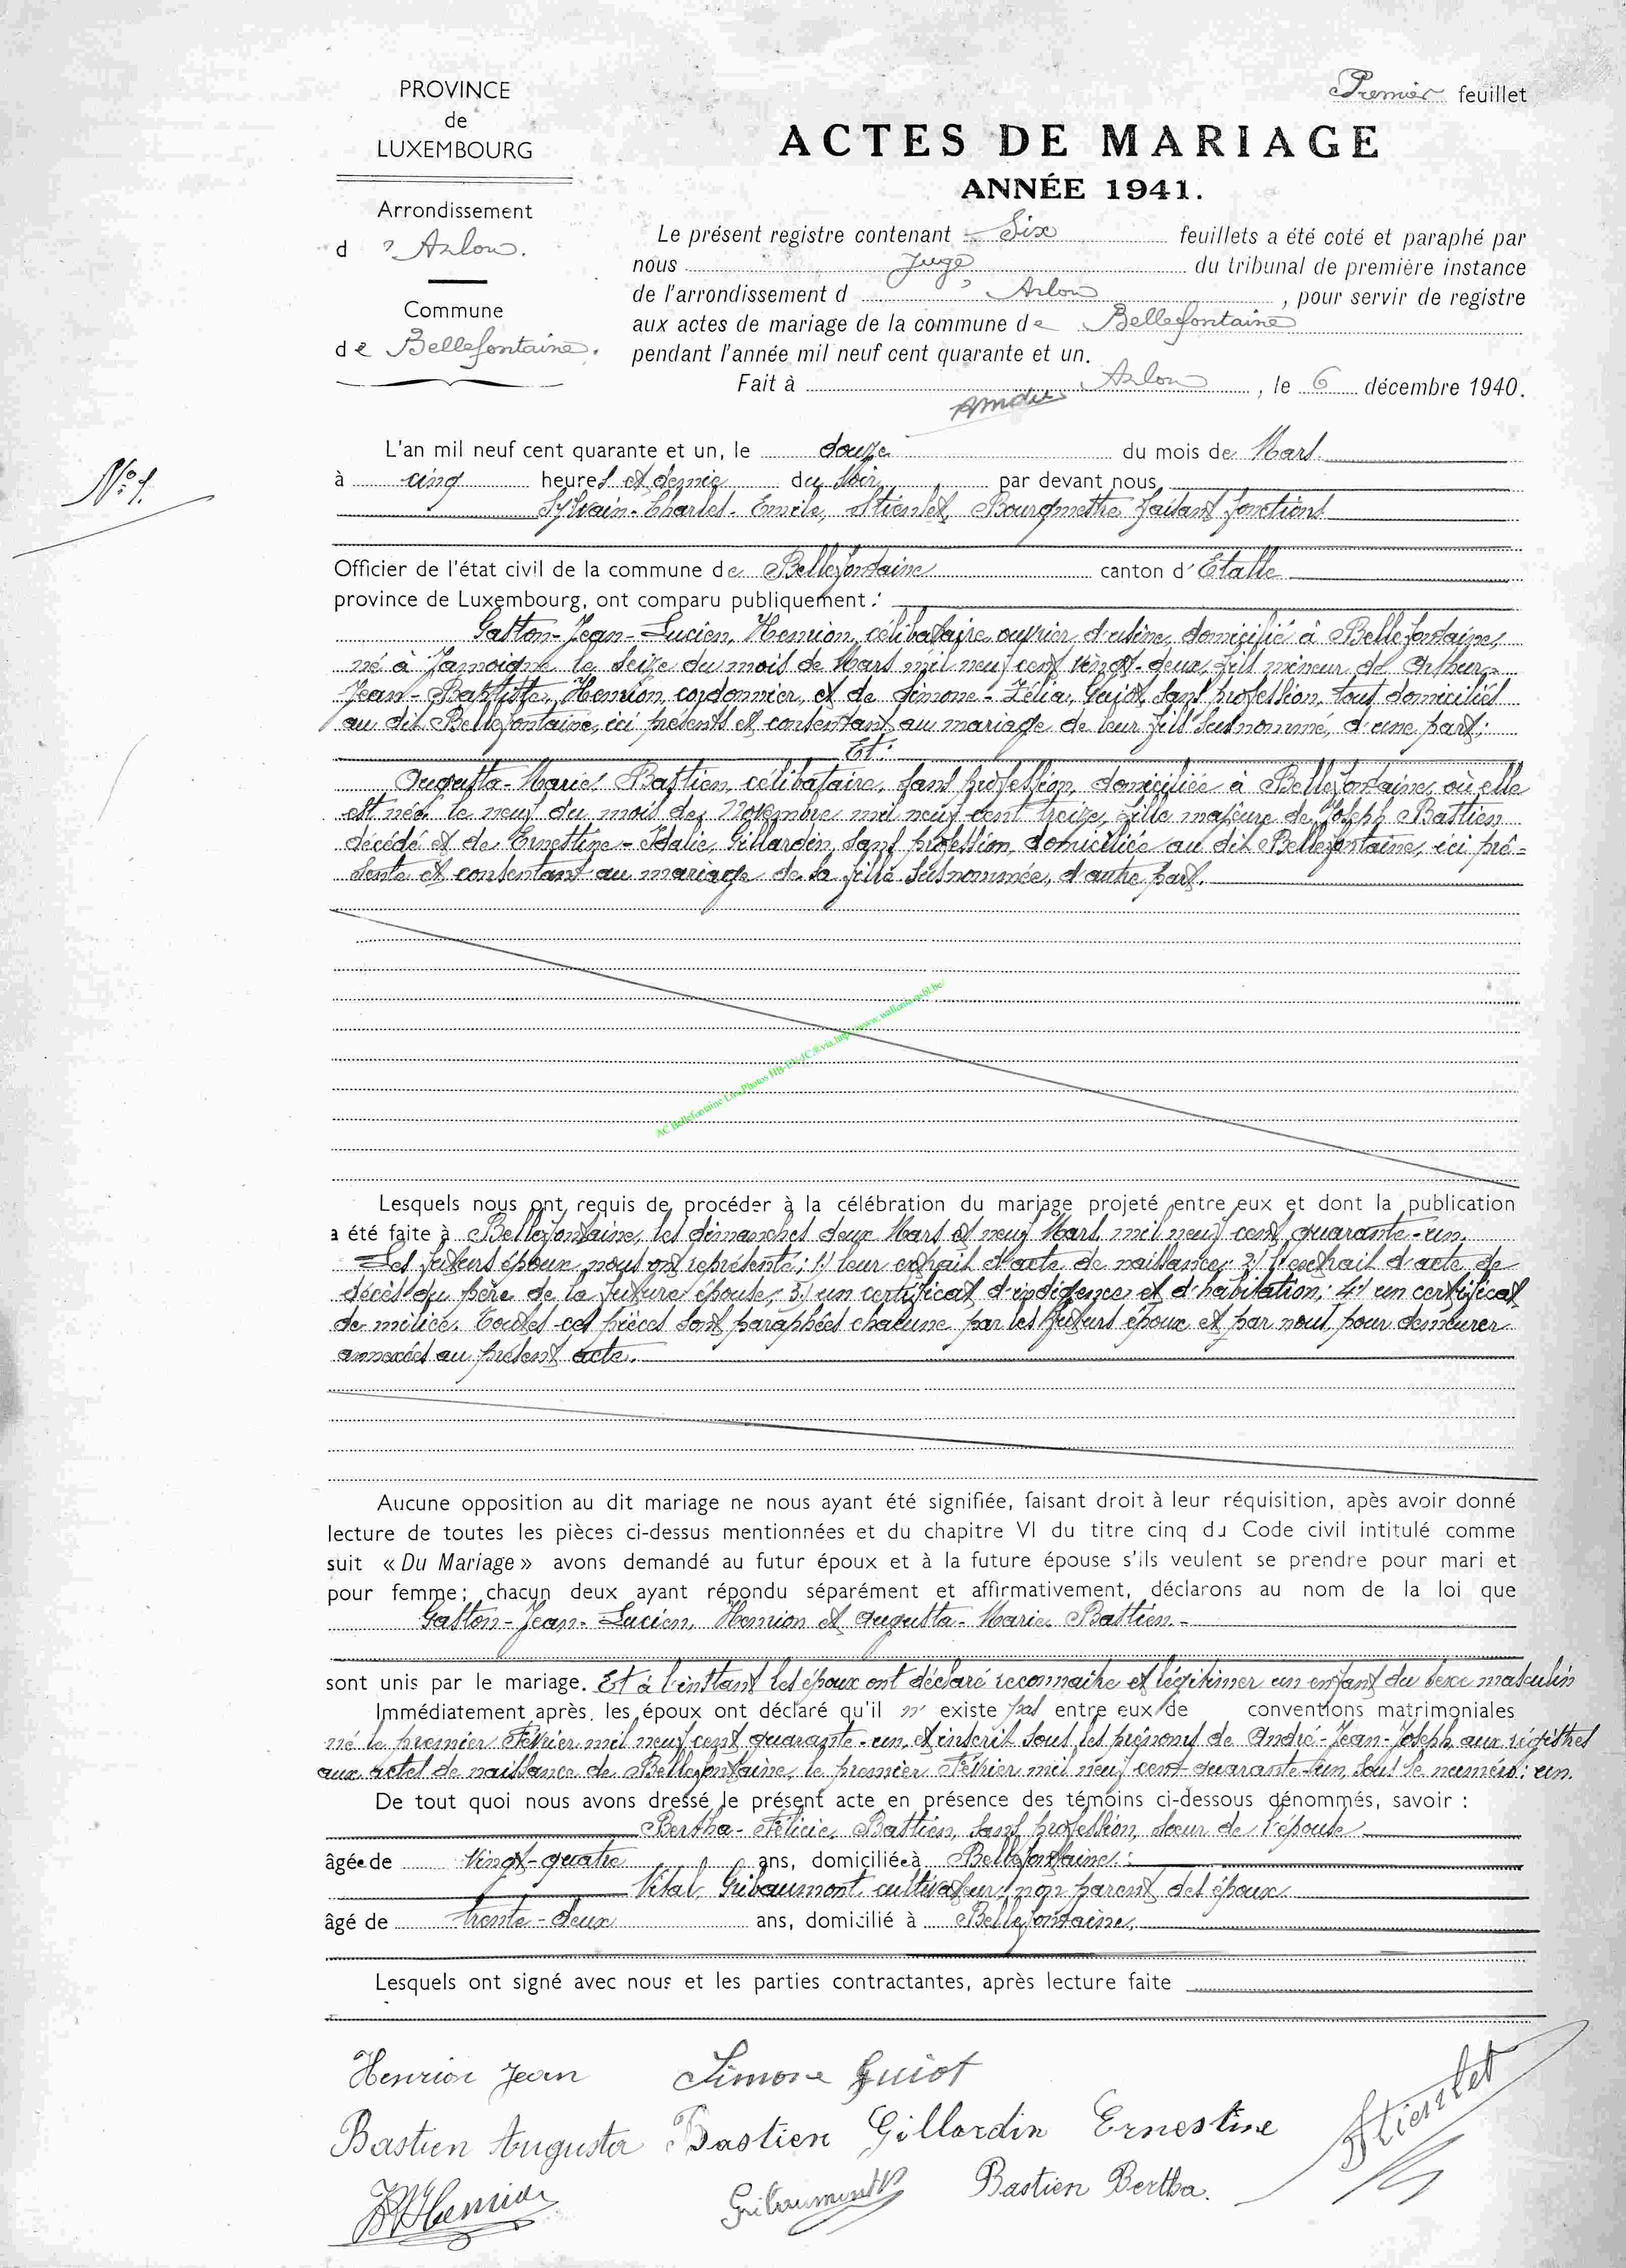 PROVINCE
de
LUXEMBOURG
Arrondissement
d'Arlon.
Commune
de Bellefontaine.
Premier feuillet
ACTES DE MARIAGE
ANNÉE 1941.
Le présent registre contenant Six feuillets a été coté et paraphé par
nous Juge du tribunal de première instance
de l'arrondissement d'Arlon, pour servir de registre
aux actes de mariage de la commune de Bellefontaine
pendant l'année mil neuf cent quarante et un.
Fait à Arlon, le 6 décembre 1940.
N° 1.
L'an mil neuf cent quarante et un, le douze du mois de Mars
à cinq heures et demie du Soir, par devant nous,
Sylvain-Charles-Emile, Stienlet, Bourgmestre faisant fonctions
Officier de l'état civil de la commune de Bellefontaine canton d'Etalle
province de Luxembourg, ont comparu publiquement :
Gaston-Jean-Lucien, Henrion, célibataire, ouvrier d'usine, domicilié à Bellefontaine,
né à Jamoigne le seize du mois de Mars mil neuf cent vingt-deux, fils mineur de Arthur-
Jean-Baptiste, Henrion, cordonnier, et de Simone-Zélia, Guiot, sans profession, tous domiciliés
au dit Bellefontaine, ici présents et consentant au mariage de leur fils susnommé, d'une part;
Et:
Augusta-Marie, Bastien, célibataire, sans profession, domiciliée à Bellefontaine, où elle
est née le neuf du mois de Novembre mil neuf cent treize, fille majeure de Joseph Bastien
décédé et de Ernestine-Idalie, Gillardin, sans profession, domiciliée au dit Bellefontaine, ici pré=
sente et consentant au mariage de sa fille susnommée, d'autre part.
AC Bellefontaine Lux Photos HB-EV-JC ®via http://www.wallonia-asbl.be/
Lesquels nous ont requis de procéder à la célébration du mariage projeté entre eux et dont la publication
a été faite à Bellefontaine, les dimanches deux Mars et neuf Mars mil neuf cent quarante-un.
Les futurs époux nous ont représenté: 1) leur extrait d'acte de naissance; 2) l'extrait d'acte de
décès du père de la future épouse; 3) un certificat d'indigence et d'habitation; 4) un certificat
de milice. Toutes ces pièces sont paraphées chacune par les futurs époux et par nous pour demeurer
annexées au présent acte.
Aucune opposition au dit mariage ne nous ayant été signifiée, faisant droit à leur réquisition, apès avoir donné
lecture de toutes les pièces ci-dessus mentionnées et du chapitre VI du titre cinq du Code civil intitulé comme
suit « Du Mariage » avons demandé au futur époux et à la future épouse s'ils veulent se prendre pour mari et
pour femme; chacun deux ayant répondu séparément et affirmativement, déclarons au nom de la loi que
Gaston-Jean-Lucien, Henrion et Augusta-Marie Bastien.-
sont unis par le mariage. Et à l'instant les époux ont déclaré reconnaitre et légitimer un enfant du sexe masculin
Immédiatement après, les époux ont déclaré qu'il n'existe pas entre eux de conventions matrimoniales
né le premier Février mil neuf cent quarante-un, et inscrit sous les prénoms de André-Jean-Joseph, aux régistres
aux actes de naissance de Bellefontaine, le premier Février mil neuf cent quarante-un, sous le numéro: un.
De tout quoi nous avons dressé le présent acte en présence des témoins ci-dessous dénommés, savoir :
Bertha-Félicie, Bastien, sans profession, sœur de l'épouse
âgée de vingt-quatre ans, domiciliée à Bellefontaine:
Vital, Gribaumont, cultivateur, non parent des époux
âgé de trente-deux ans, domicilié à Bellefontaine,
Lesquels ont signé avec nous et les parties contractantes, après lecture faite
Henrion Jean Simone Guiot
Bastien Augusta Bastien Gillardin Ernestine Stienlet
Henrion Gribaumont V Bastien Bertha.